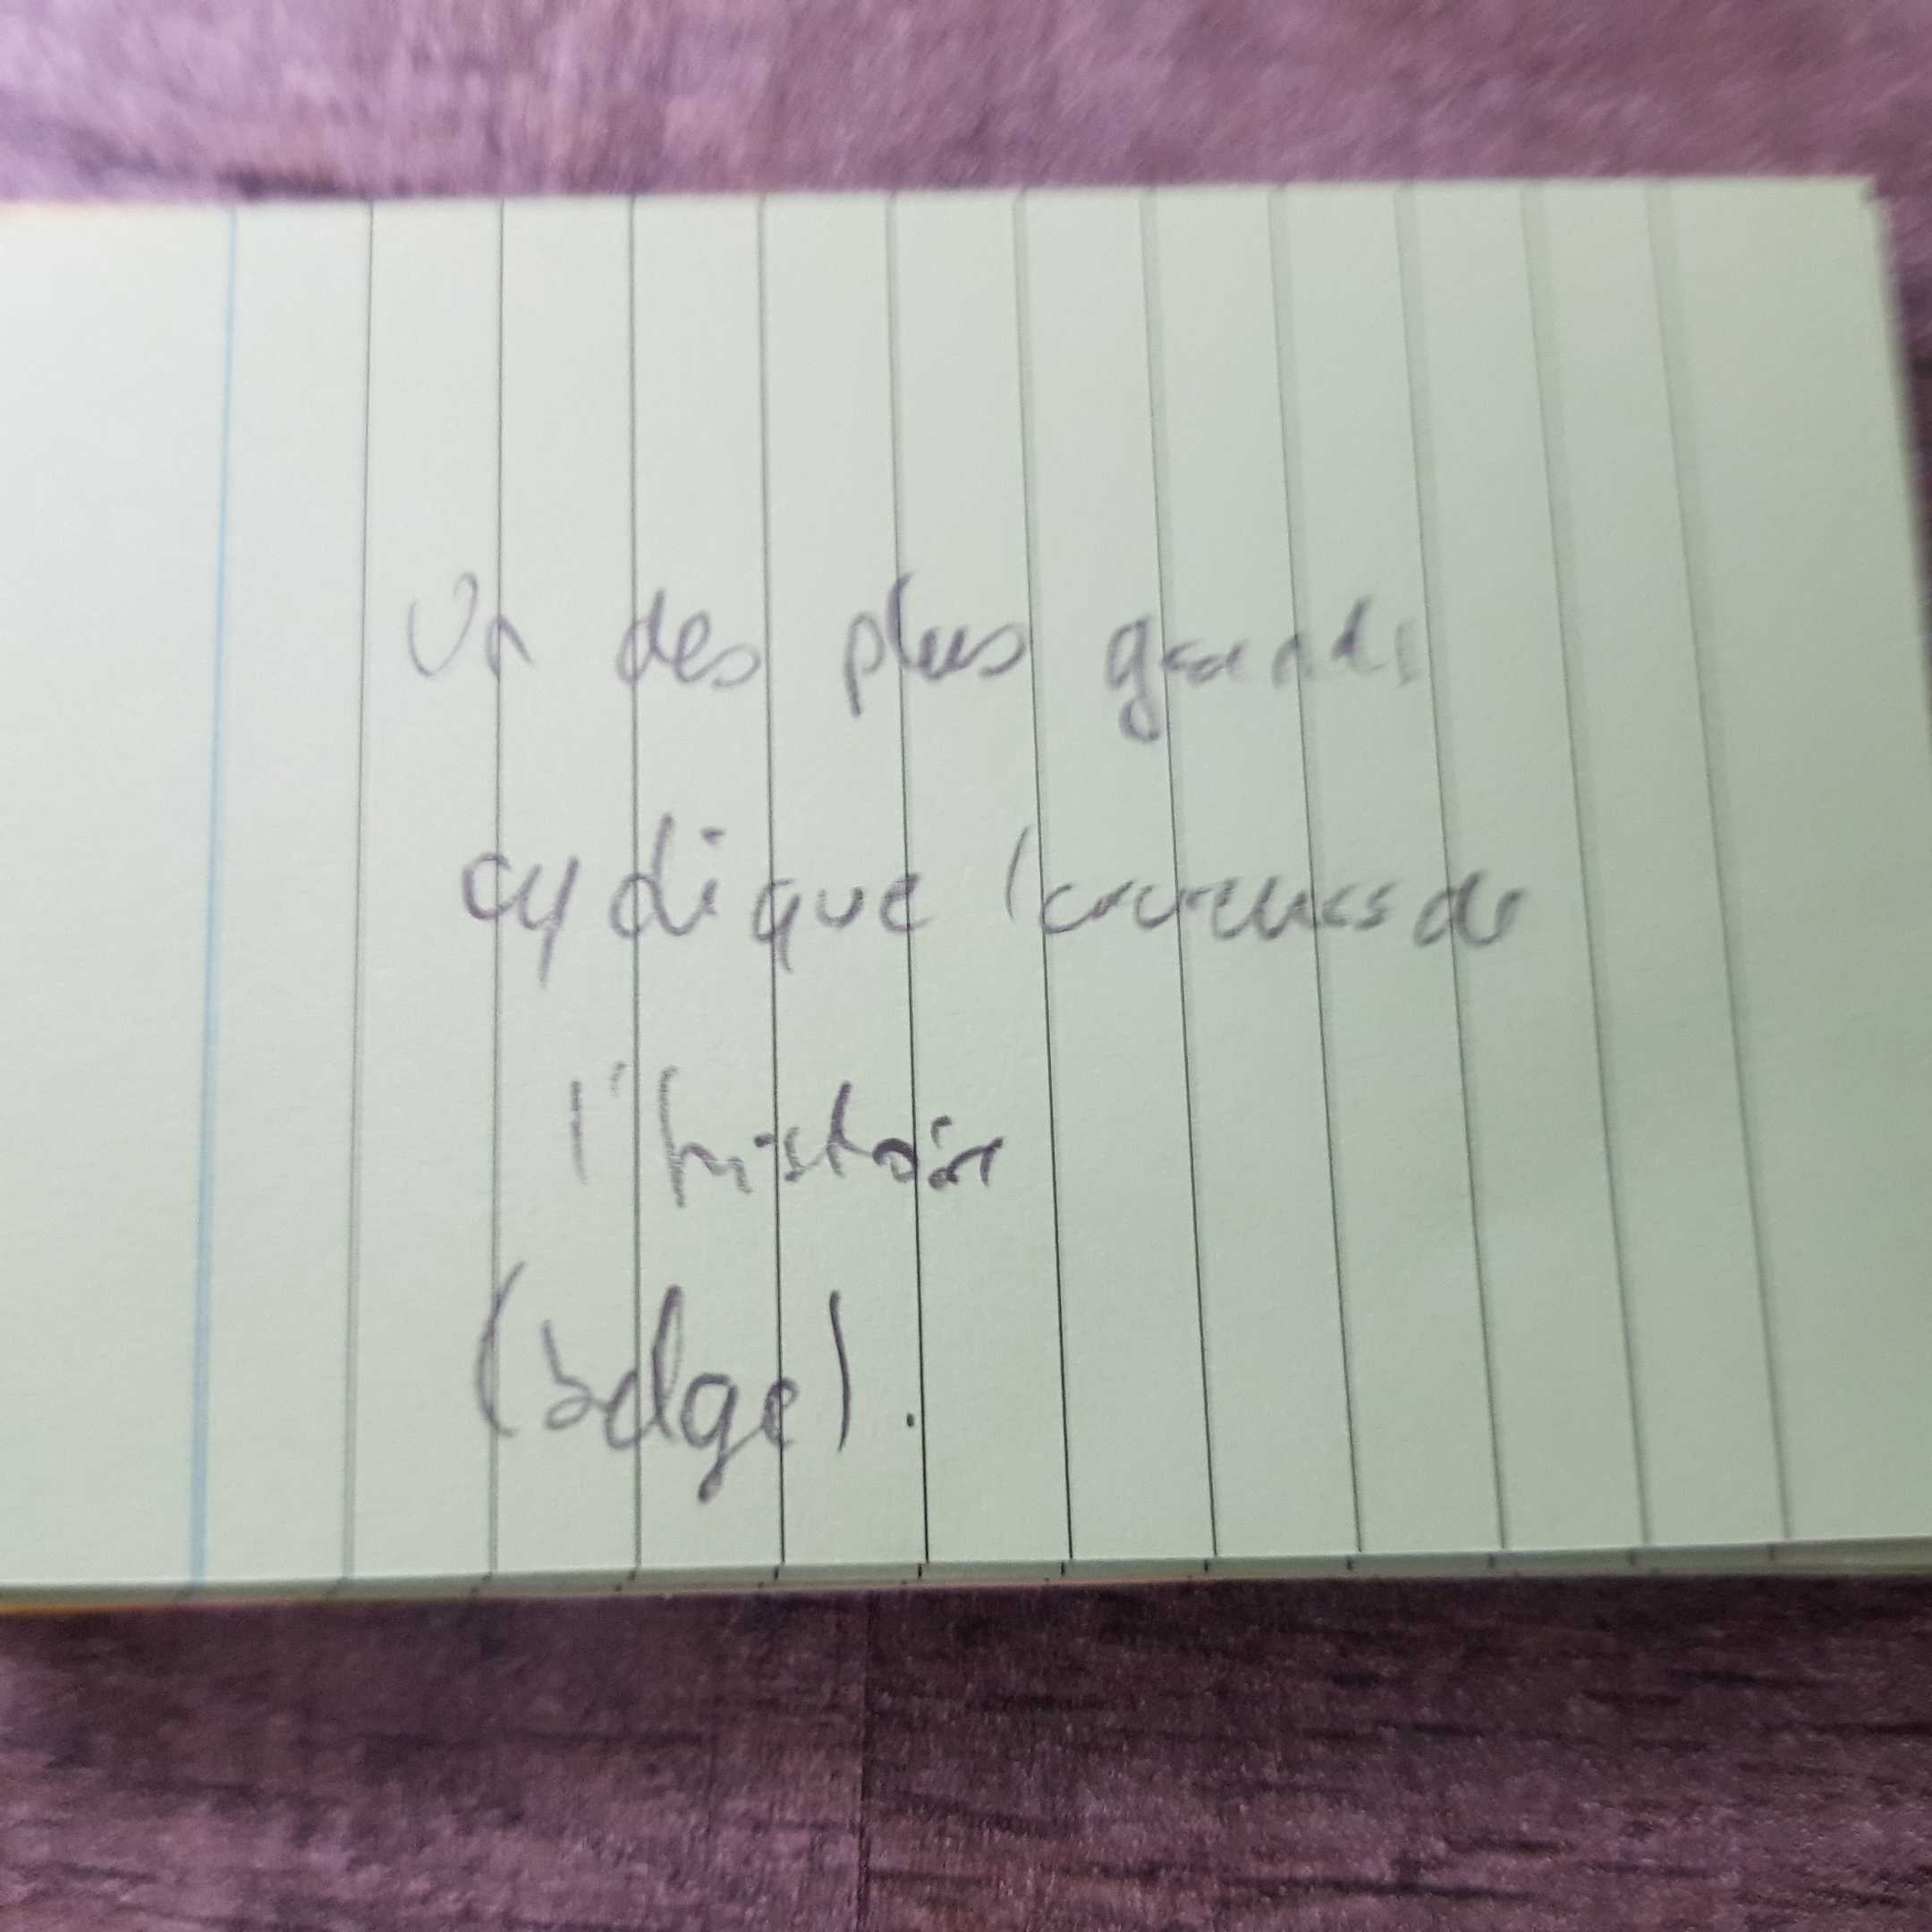 Un des plus grands
cyclique coureurs de
l'histoire
(belge).